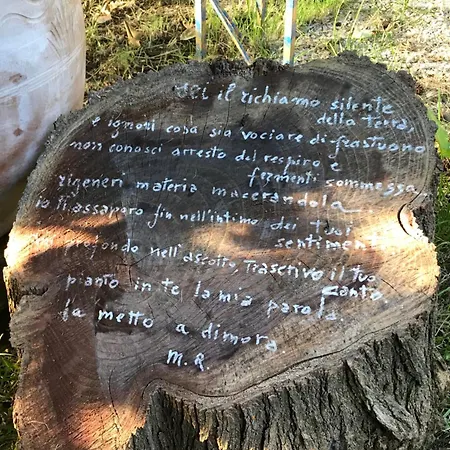 Sei il richiamo silente
della terra,
e ignori cosa sia vociare di frastuono
non conosci arresto del respiro e
fermenti sommessa,
rigeneri materia macerandola
io Ti assaporo fin nell'intimo dei tuoi
sentimenti
profondo nell'ascolto, Trascrivo il tuo
canto.
pianto in te la mia parola.
la metto a dimora.
M.R.